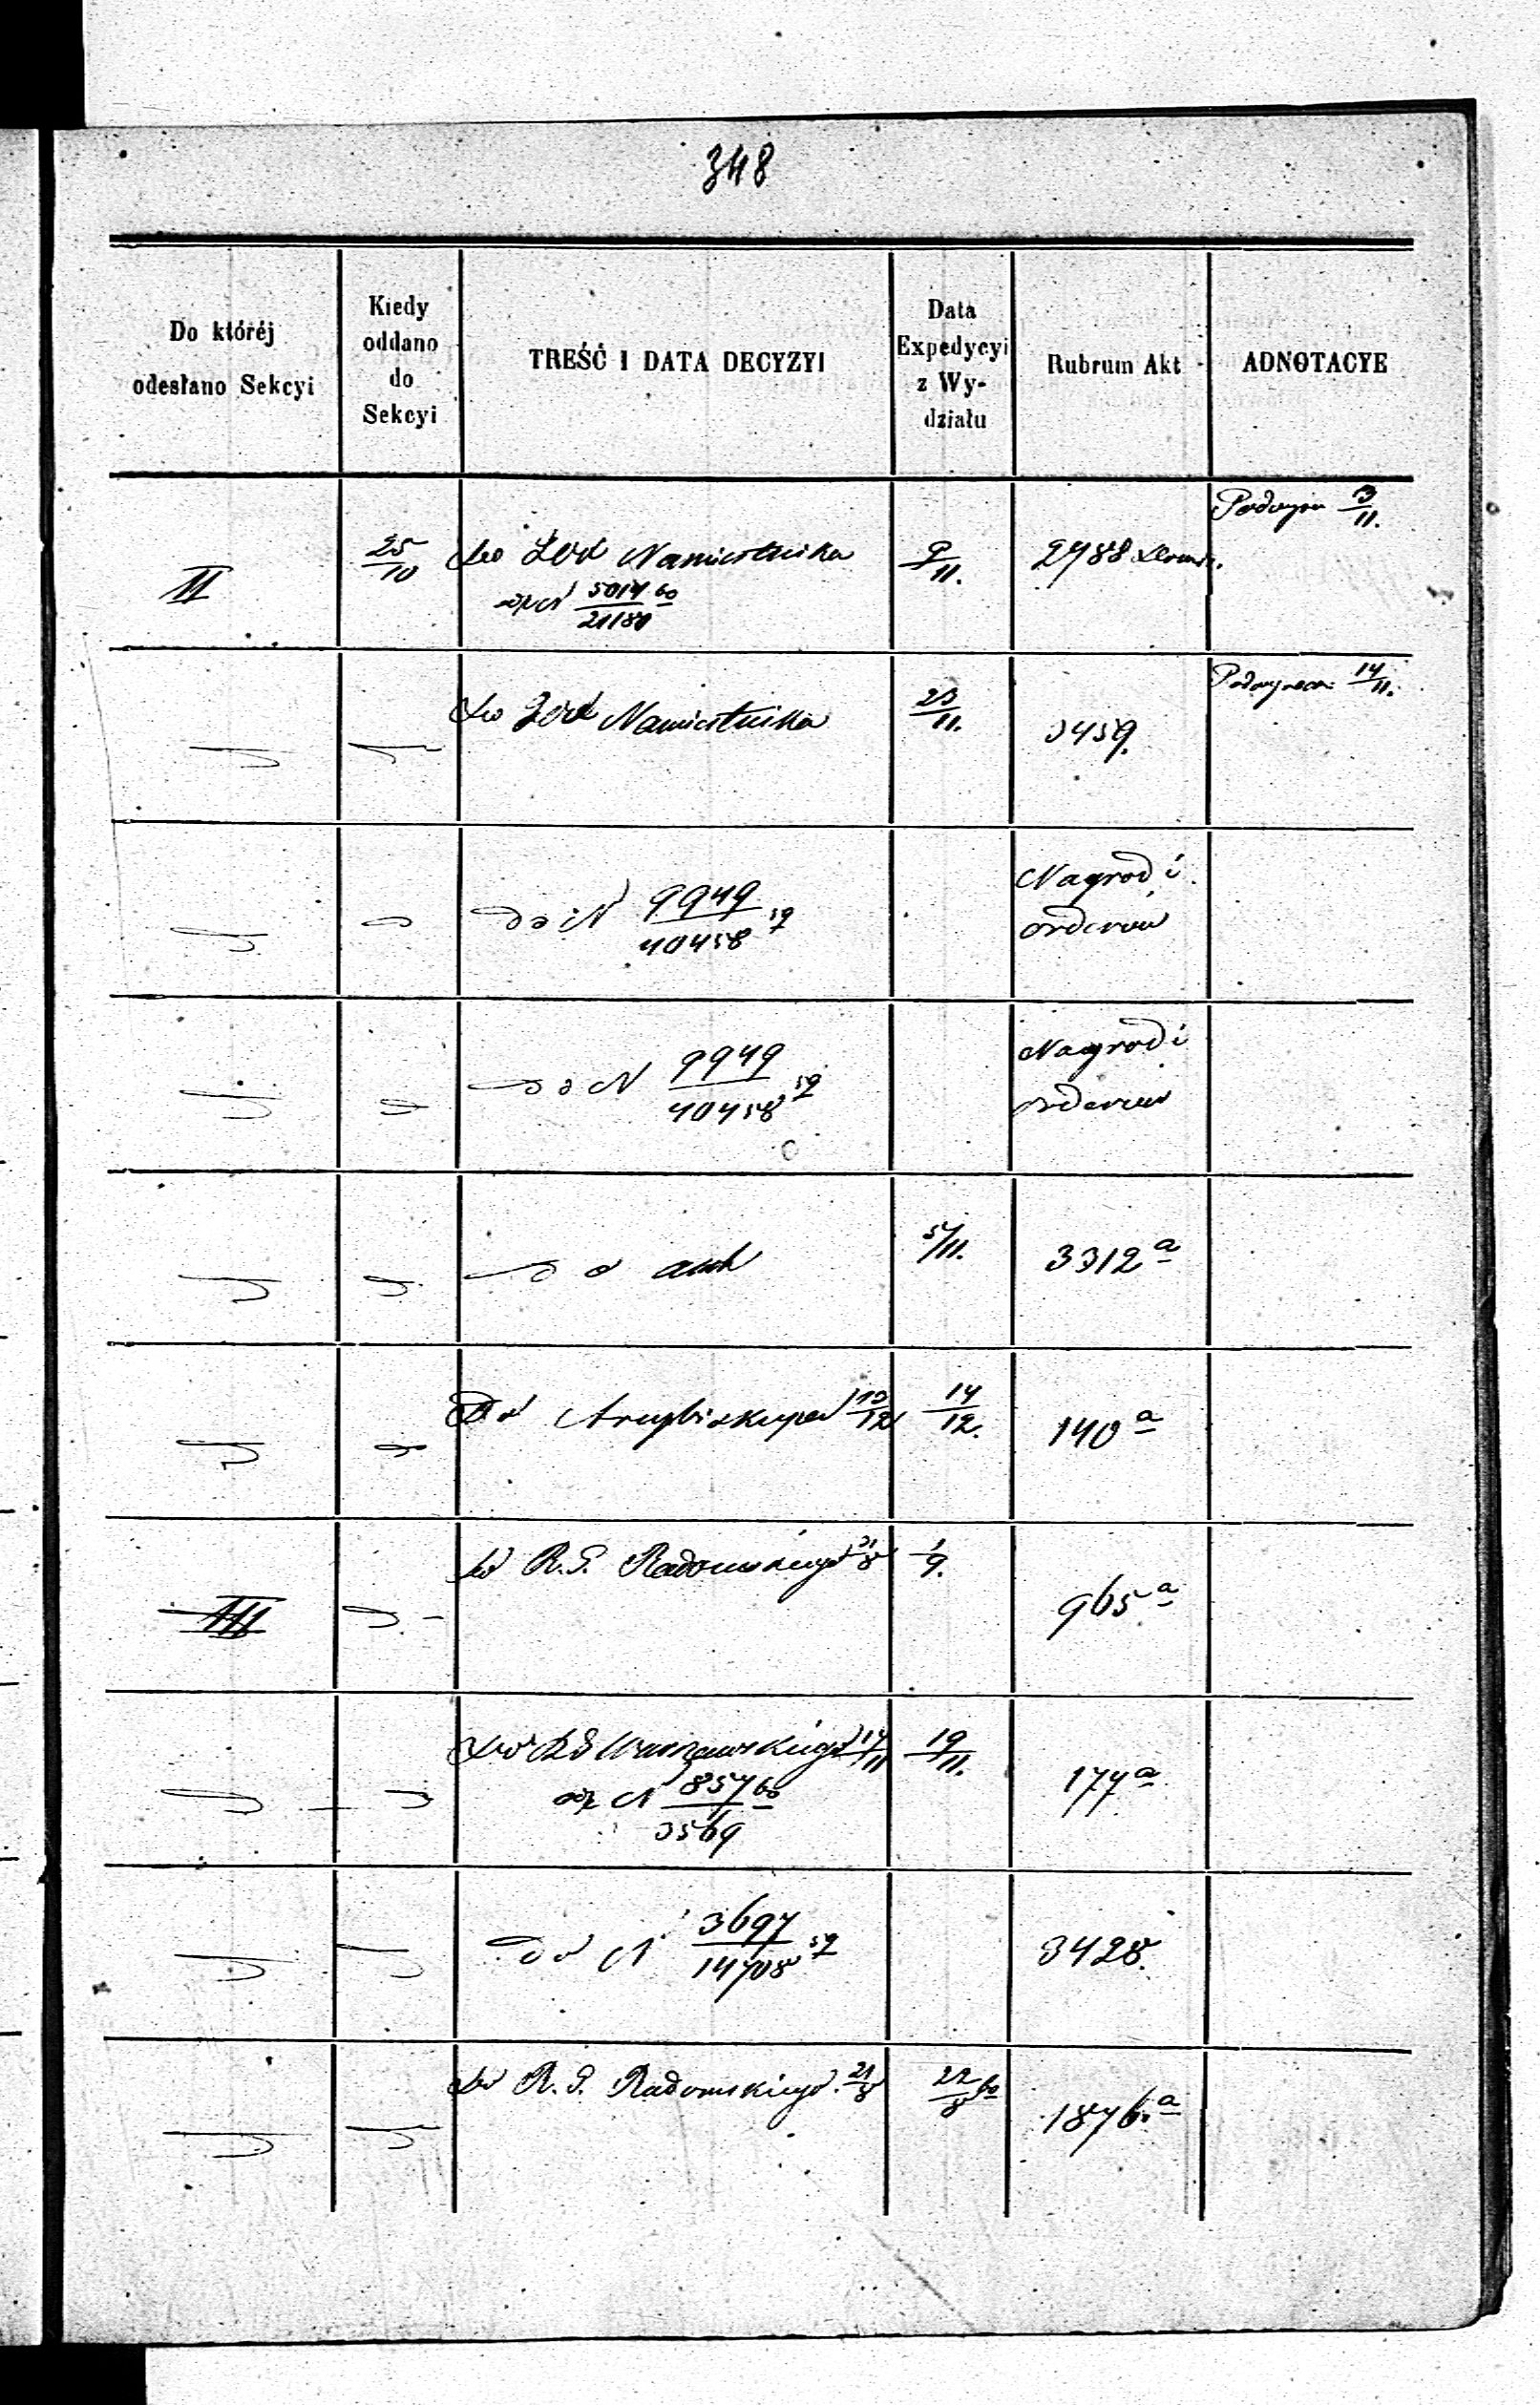 348
Do któréj
odesłano Sekcyi
Kiedy
oddano
do
Sekcyi
TREŚĆ I DATA DECYZYI
Data
Expedycyi
z Wy-
działu
Rubrum Akt
ADNOTACYE
II
25/10
do Namiestnika
N 5014/21181 60
9/11.
2788
3/11.
do Namiestnika
23/11.
3459.
14/11.
do N 9949/40458 59
Nagrod i
orderów
do N 9949/40458 59
Nagrod i
orderów
do akt
5/11.
3312 a
Do Arcybiskupa 13/12
14/12.
140 a
III
do R. G. Radomskiego 31/8
1/9.
965 a
do R G Warszawskiego 17/11
N 857/3569 60
19/11.
177 a
do N 3697/14708 59
3428.
do R. G. Radomskiego. 21/8
22/8 60
1876. a